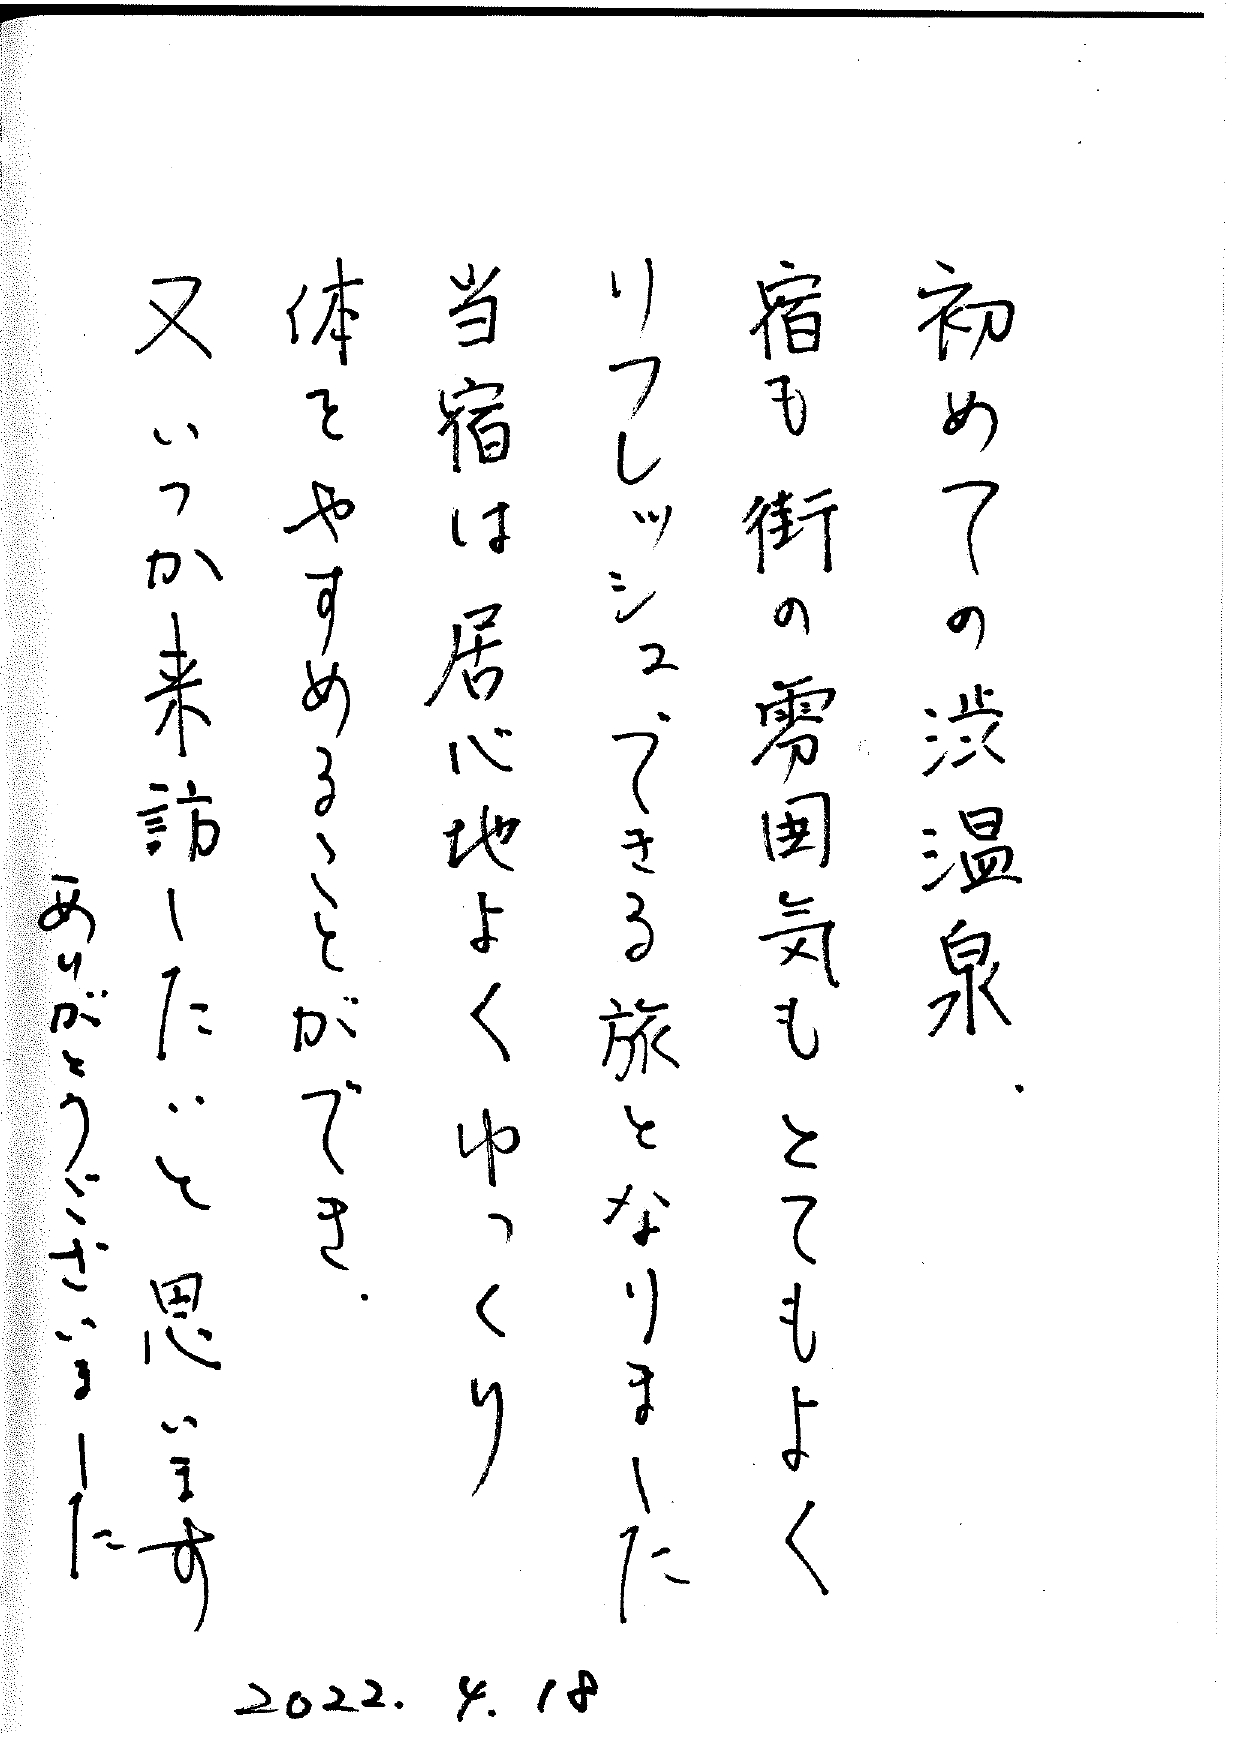 初めての渋温泉.
宿も街の雰囲気もとてもよく
リフレッシュできる旅となりました
当宿は居心地よくゆっくり
体をやすめることができ.
又いつか来訪したいと思います
ありがとうございました
2022. 4. 18